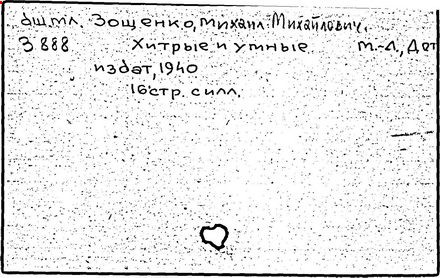 ош.мл. Зощенко, Михаил Михайлович.
З 888 Хитрые и умные. М.-Л, Дет
издат, 1940
16стр. силл.